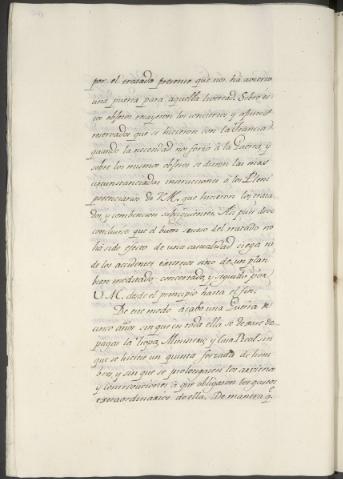 por el tratado presente que nos ha abierto
una puerta para aquella livertad. Sobre es-
tos objetos recayeron los conciertos, y ajustes
reservados que se hicieron con la Francia
quando la necesidad nos forzó á la Guerra, y
sobre los mismos objetos se dieron las mas
circunstanciadas instrucciones á los Pleni
potenciarios de V.M. que hicieron los trata
dos, y combencion subsiguiente. Asi pues devo
concluir que el buen suceso del tratado no
ha sido efecto de una casualidad ciega ni
de los accidentes externos sino de un plan
bien meditado, concertado, y seguido por
V.M. desde el principio hasta el fin.
De este modo acabó una Guerra de
cinco años sin que en toda ella se dejase de
pagar la tropa, Ministerio, y Casa Real, sin
que se hiciese un quinta forzada de hom
bres, y sin que se prolongasen los arvitrios
y contribuciones á que obligaron los gastos
extraordinarios de ella. De manera q.e